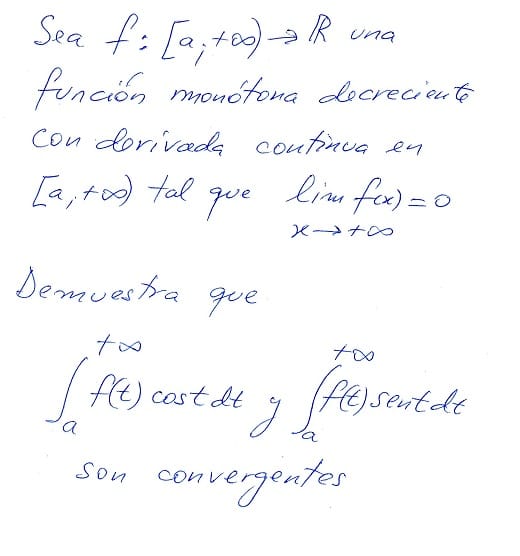 Sea f: [a,+∞) → ℝ una
función monótona decreciente
con derivada continua en
[a,+∞) tal que lim f(x) = 0
x → +∞
Demuestra que
+∞ +∞
∫ f(t) cost dt y ∫ f(t) sent dt
a a
son convergentes